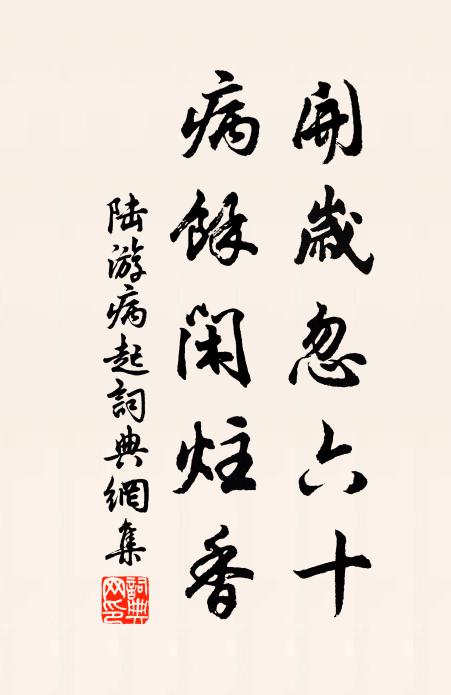 開歲忽六十
病餘閑炷香
陆游病起詞典網集
詞典網印